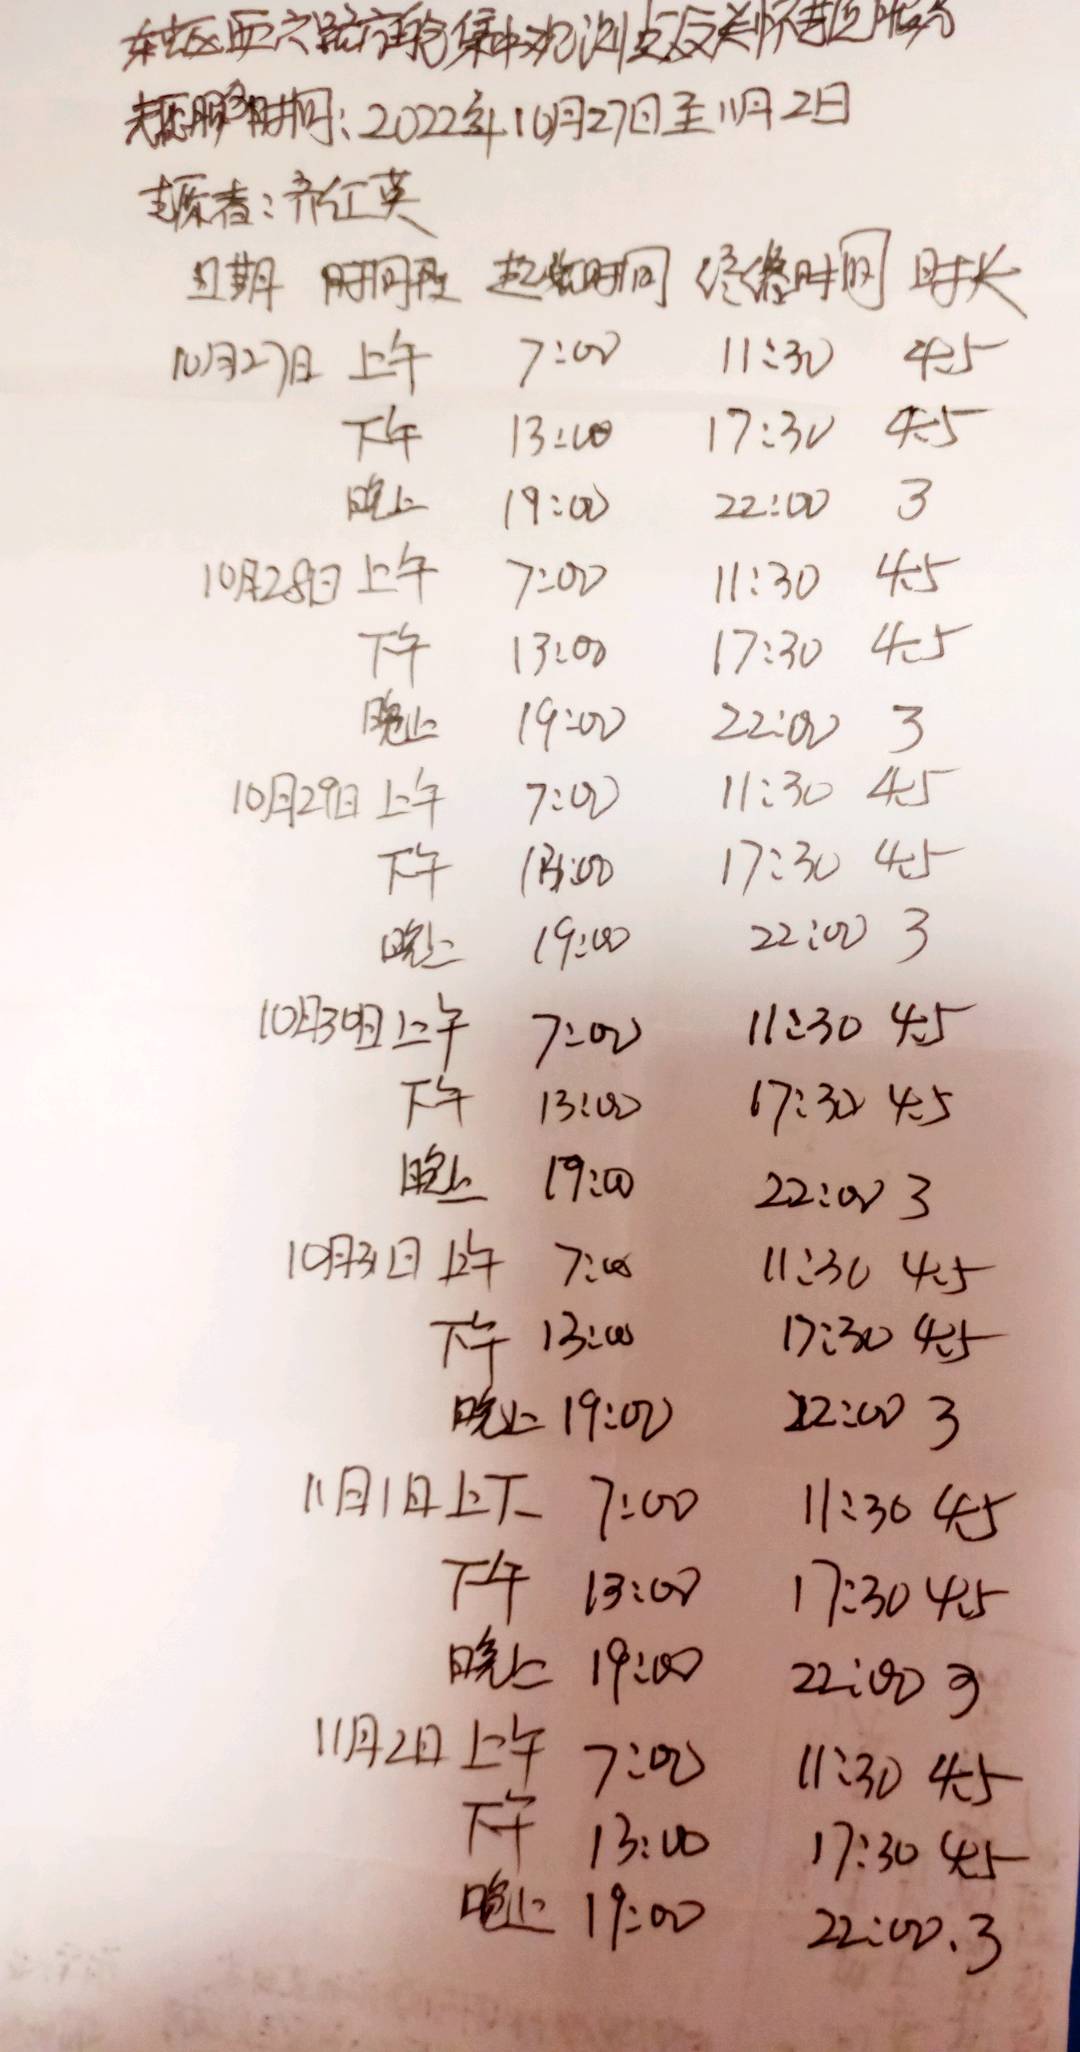 东区西六路 集中观测点 关怀
时间:2022年10月27日至11月2日
者:齐红英
日期 时间段 起始时间 终终时间 时长
10月27日 上午 7:00 11:30 4.5
下午 13:00 17:30 4.5
晚上 19:00 22:00 3
10月28日 上午 7:00 11:30 4.5
下午 13:00 17:30 4.5
晚上 19:00 22:00 3
10月29日 上午 7:00 11:30 4.5
下午 13:00 17:30 4.5
晚上 19:00 22:00 3
10月30日 上午 7:00 11:30 4.5
下午 13:00 17:30 4.5
晚上 19:00 22:00 3
10月31日 上午 7:00 11:30 4.5
下午 13:00 17:30 4.5
晚上 19:00 22:00 3
11月1日 上下 7:00 11:30 4.5
下午 13:00 17:30 4.5
晚上 19:00 22:00 3
11月2日 上午 7:00 11:30 4.5
下午 13:00 17:30 4.5
晚上 19:00 22:00. 3